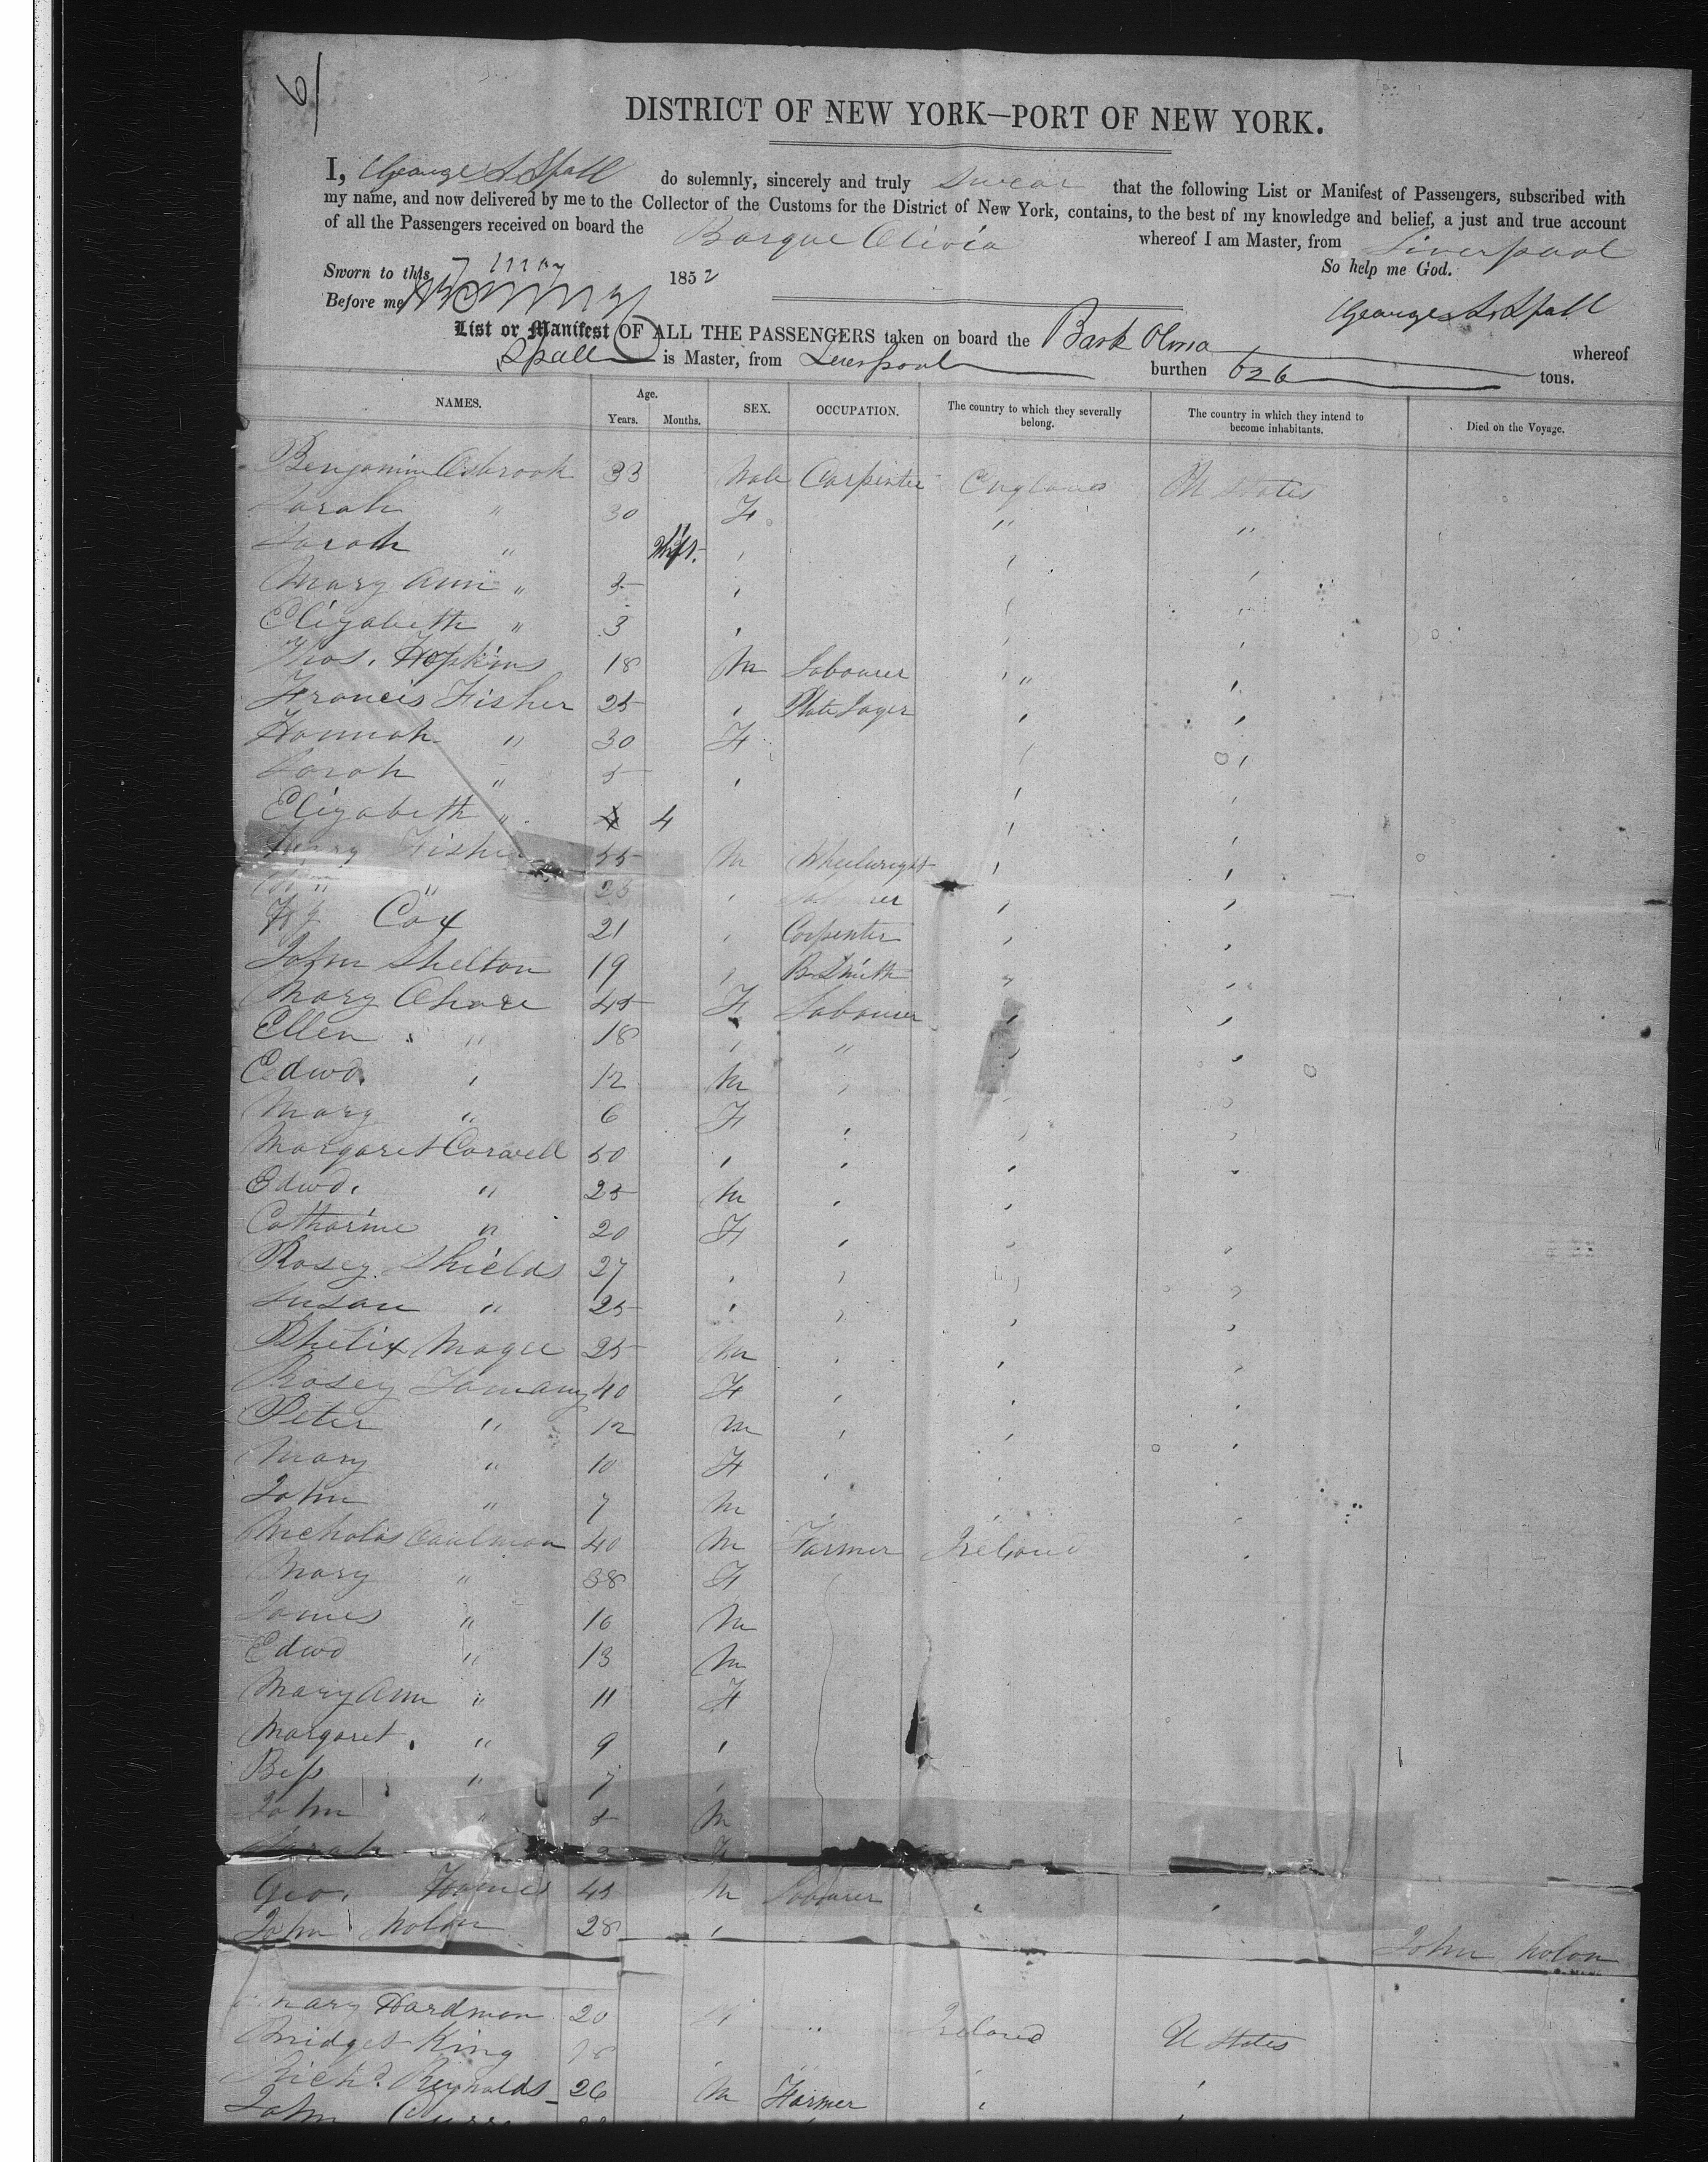 6
DISTRICT OF NEW YORK—PORT OF NEW YORK.
I, George S. Spall do solemnly, sincerely and truly swear that the following List or Manifest of Passengers, subscribed with
my name, and now delivered by me to the Collector of the Customs for the District of New York, contains, to the best of my knowledge and belief, a just and true account
of all the Passengers received on board the Barque Olivia whereof I am Master, from Liverpool
Sworn to this 7 May 1852 So help me God.
Before me George S. Spall
List or Manifest OF ALL THE PASSENGERS taken on board the Bark Olivia whereof
Spall is Master, from Liverpool burthen 626 tons.
NAMES. Age. Years. Months. SEX. OCCUPATION. The country to which they severally belong. The country in which they intend to become inhabitants. Died on the Voyage.
Benjamin Osbrook 33 Male Carpenter England U States
Sarah " 30 F " "
Sarah "
Mary Ann " 5
Elizabeth " 3
Thos. Hopkins 18 M Labourer "
Francis Fisher 25 Plate Layer
Hannah " 30 F
Sarah " 5
Elizabeth " 4
Fisher 55 M Wheelwright
" 23 Labourer
Cox 21 Carpenter
John Shelton 19 B Smith
Mary 45 F Labourer
Ellen " 18 "
Edwd. 12 M
Mary " 6 F
Margaret Carvell 50
Edwd. " 25 M
Catharine " 20 F
Rosey Shields 27
Susan " 25
Phelix Magee 25 M
Rosey Tamany 40 F
Peter " 12 M
Mary " 10 F
John " 7 M
Nicholas 40 M Farmer Ireland
Mary " 38 F
James " 16 M
Edwd " 13 M
Mary Ann " 11 F
Margaret. " 9
Bess " 7
John " 5 M
Sarah F
Geo. 45 M Labourer
John Nolan 28 John Nolan
Mary Hardman 20 " Ireland U States
Bridget King
Richd. Reynolds 26 M Farmer
John